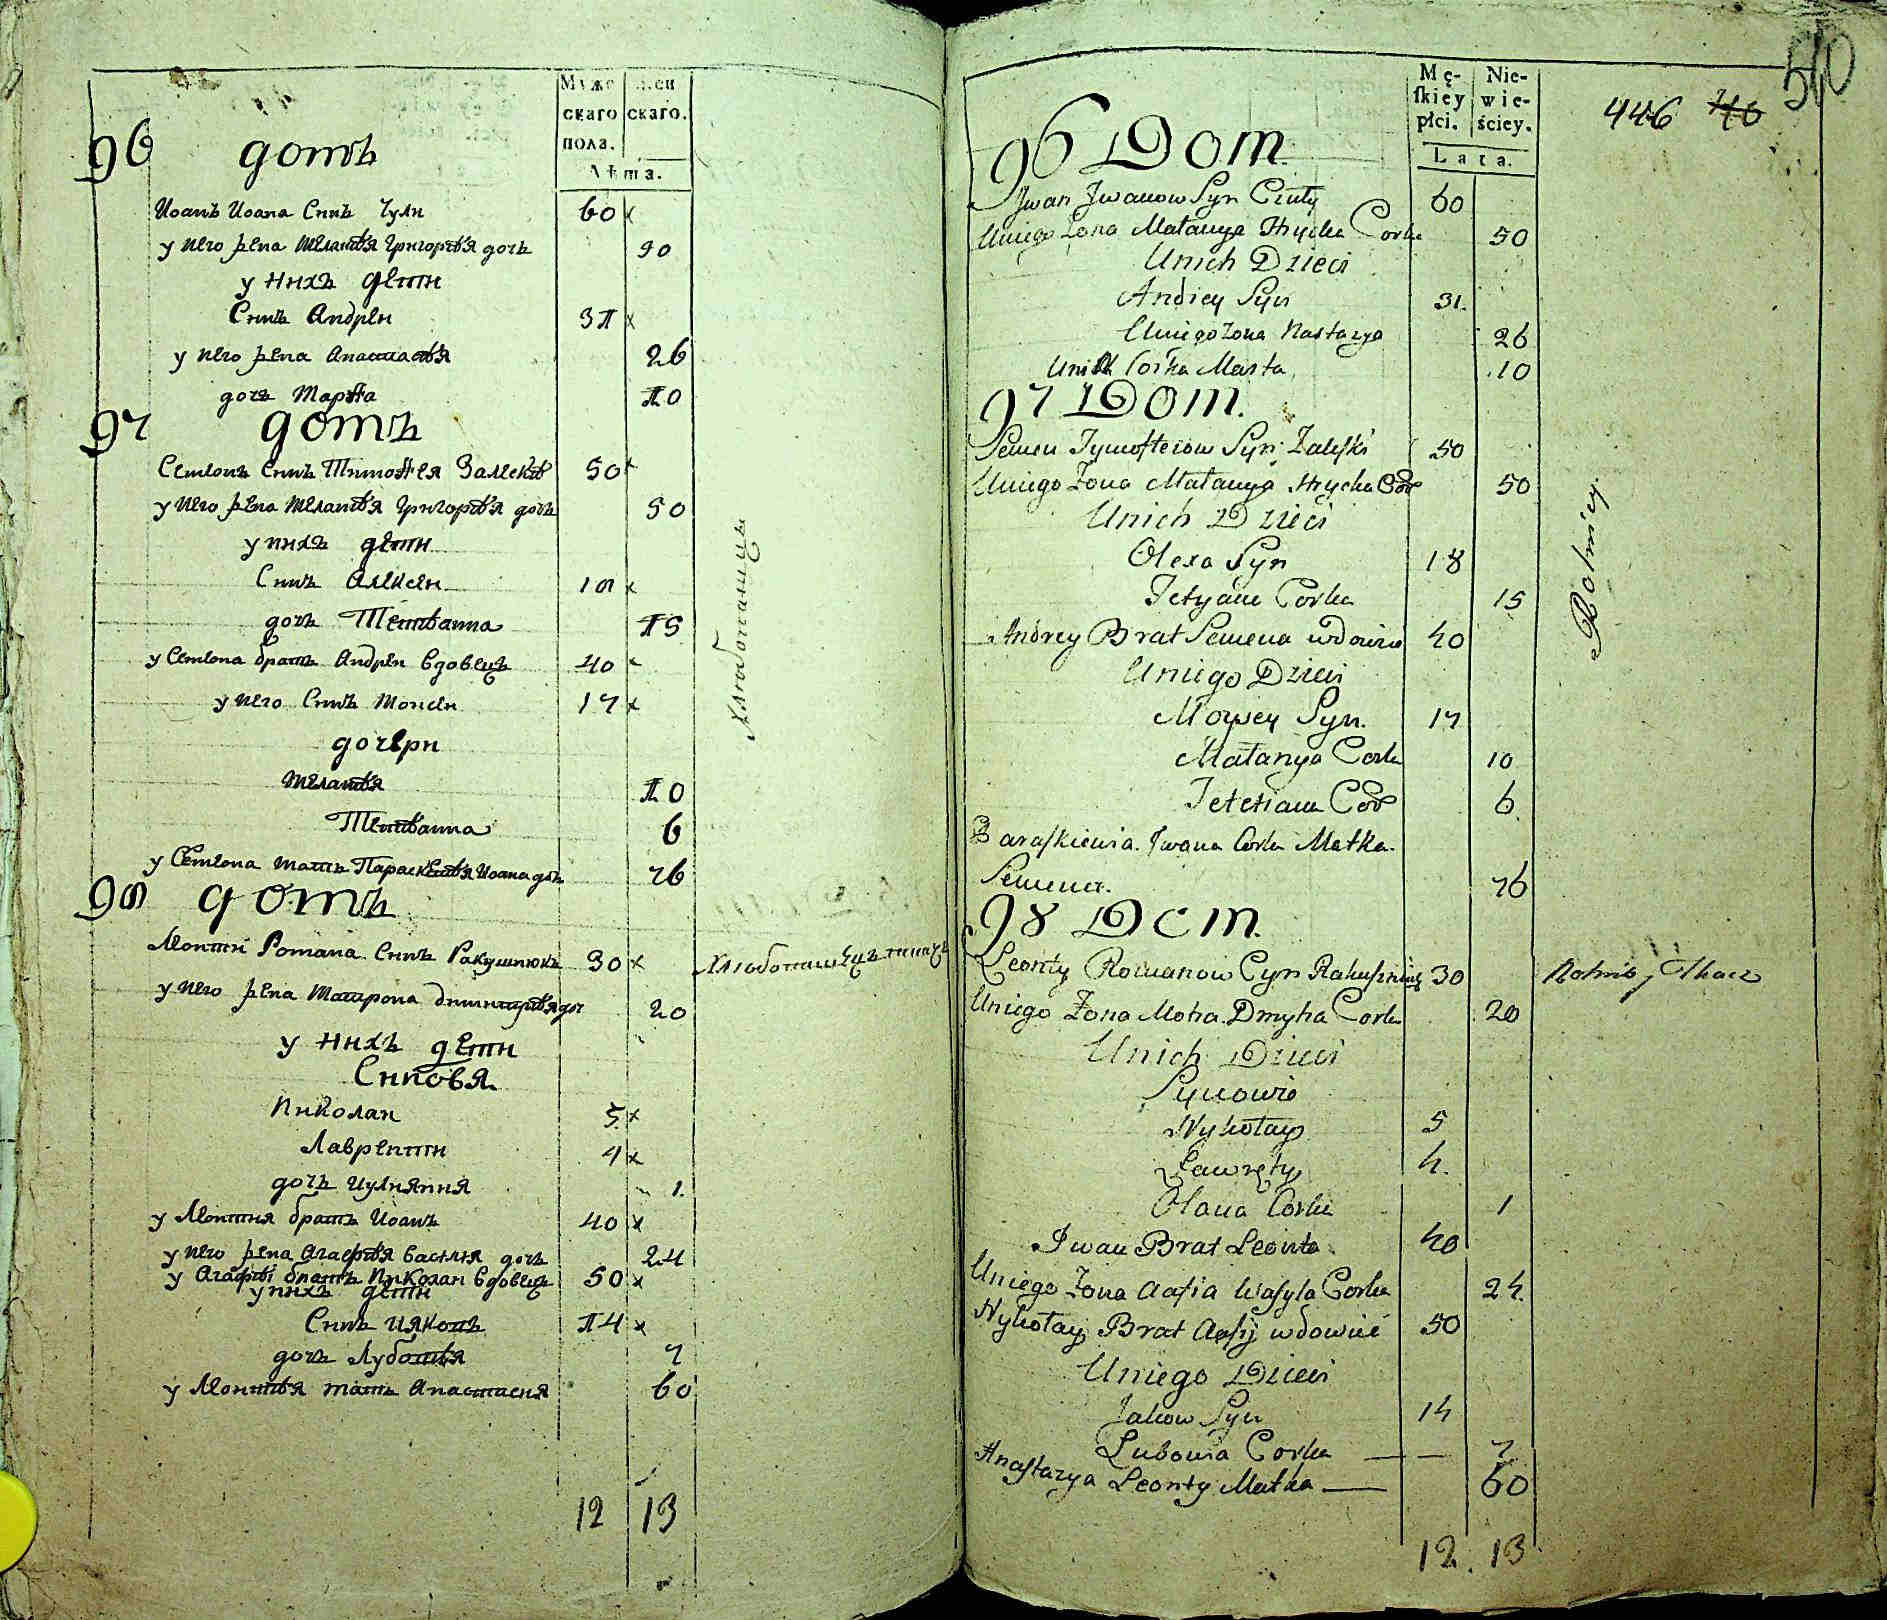 Муже
скаго
пола.
скаго.
Лѣта.
96 домъ
Иоанъ Иоана Синъ Чули 60 x
у него жена Меланія Григорія дочь 90
у нихъ дети
Синъ Андрей 31 x
у него жена Анастасія 26
дочь Марѳа 10
97 домъ
Семіонъ Синъ Тимоѳея Залескій 50 x
у него жена Меланія Григорія дочь 50
у нихъ дети
Синъ Алексей 18 x
дочь Тетіанна 15
у Семіона братъ Андрей вдовецъ 40
у него Синъ Моисей 17 x
дочери
Меланія 10
Тетіанна 6
у Семіона мать Параскевія Иоана дочь 76
Хлебопашцы
98 домъ
Леонтій Романа Синъ Ракушнюкъ 30 x
у него жена Матрона Димитрія доч 20
у нихъ дети
Синовя
Николай 5 x
Лаврентий 4 x
дочь Иулияния 1.
у Леонтия братъ Иоанъ 40 x
у него жена Агафія Василия дочь 24
у Агафіи братъ Николай вдовецъ 50 x
у нихъ дети
Синъ Ияковъ 14 x
дочь Лубовія 7
у Леонтія мать Анастасия 60
12 13
Mę-
skiey
płci.
Nie-
wie-
ściey.
Lata.
446 40
510
96 Dom
Jwan Jwanow Syn Czuły 60
Uniego Zona Małanya Hrycka Corka 50
Unich Dzieci
Andrey Syn 31.
Uniego Zona Nastazya 26
Unich Corka Marta 10
97 Dom.
Semen Tymofteiow Syn Zaleski 50
Uniego Zona Małanya Hrycka Cor 50
Unich Dzieci
Olexa Syn 18
Tetyana Corka 15
Andrey Brat Semena wdowiec 40
Uniego Dzieci
Moysey Syn. 17
Małanya Corka 10
Tetetiana Cor 6
Paraskiewia Jwana Corka Matka
Semena. 76
Rolnicy
98 Dom.
Leonty Romanow Syn Rakuszniuk 30 Rolnik, Tkacz
Uniego Żona Motra Dmytra Corka 20
Unich Dzieci
Synowie
Nykołay 5
Ławręty 4.
Olana Corka 1
Jwan Brat Leonta 40
Uniego Zona Aafia Wasyla Corka 24.
Nykołay Brat Aafij wdowiec 50
Uniego Dzieci
Jakow Syn 14
Lubowia Corka 7
Anastazya Leonty Matka 60
12. 13